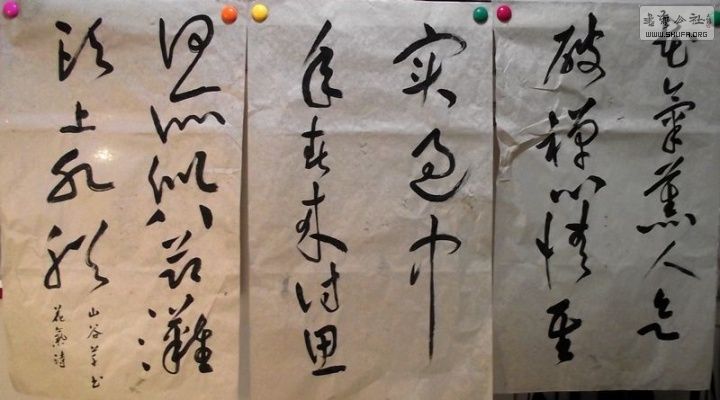 花氣薰人欲
破禪心情其
实過中
年春来詩思
何所似八节灘
頭上水船
山谷草书
花氣诗
书法公社
WWW.SHUFA.ORG